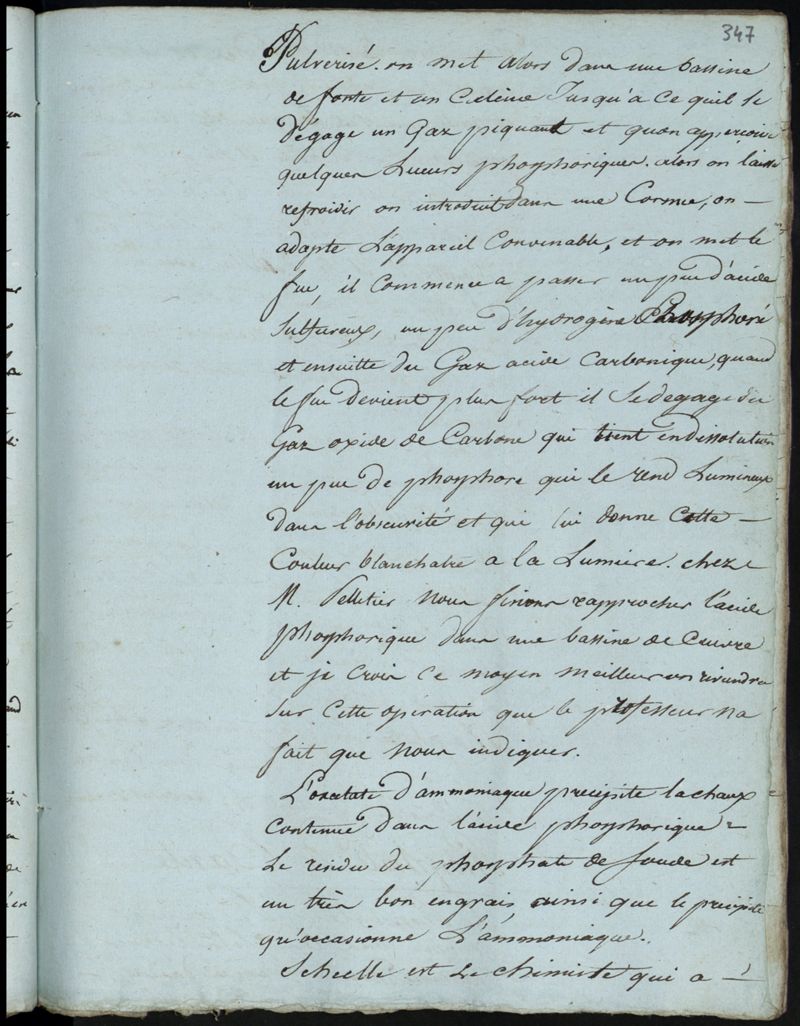 347
Pulverisé. on met alors dans une bassine
de fonte et on Calcine Jusqu'a Ce quil Se
dégage un Gaz piquant et quon apperçoive
quelques Lueurs phosphoriques. alors on laisse
refroidir on introduit dans une Cornue, on —
adapte L'appareil Convenable, et on met le
feu, il Commence a passer un peu d'acide
Sulfureux, un peu d'hydrogène Phosphoré
et ensuitte du Gaz acide Carbonique, quand
le feu devient plus fort il Se degage du
Gaz oxide de Carbone qui tient en dissolution
un peu de phosphore qui le rend Lumineux
dans l'obscurité et qui lui donne Cette —
Couleur blanchatre a la Lumiere. chez
M. Pelletier nous faisions rapprocher l'acide
phosphorique dans une bassine de Cuivre
et je Crois Ce moyen meilleur on reviendra
Sur Cette operation que le professeur na
fait que nous indiquer.
L'oxalate d'ammoniaque precipite la chaux =
Contenue dans l'acide phosphorique =
Le residu du phosphate de soude est
un très bon engrais ainsi que le precipité
qu'occasionne L'ammoniaque.
Scheelle est Le chimiste qui a —